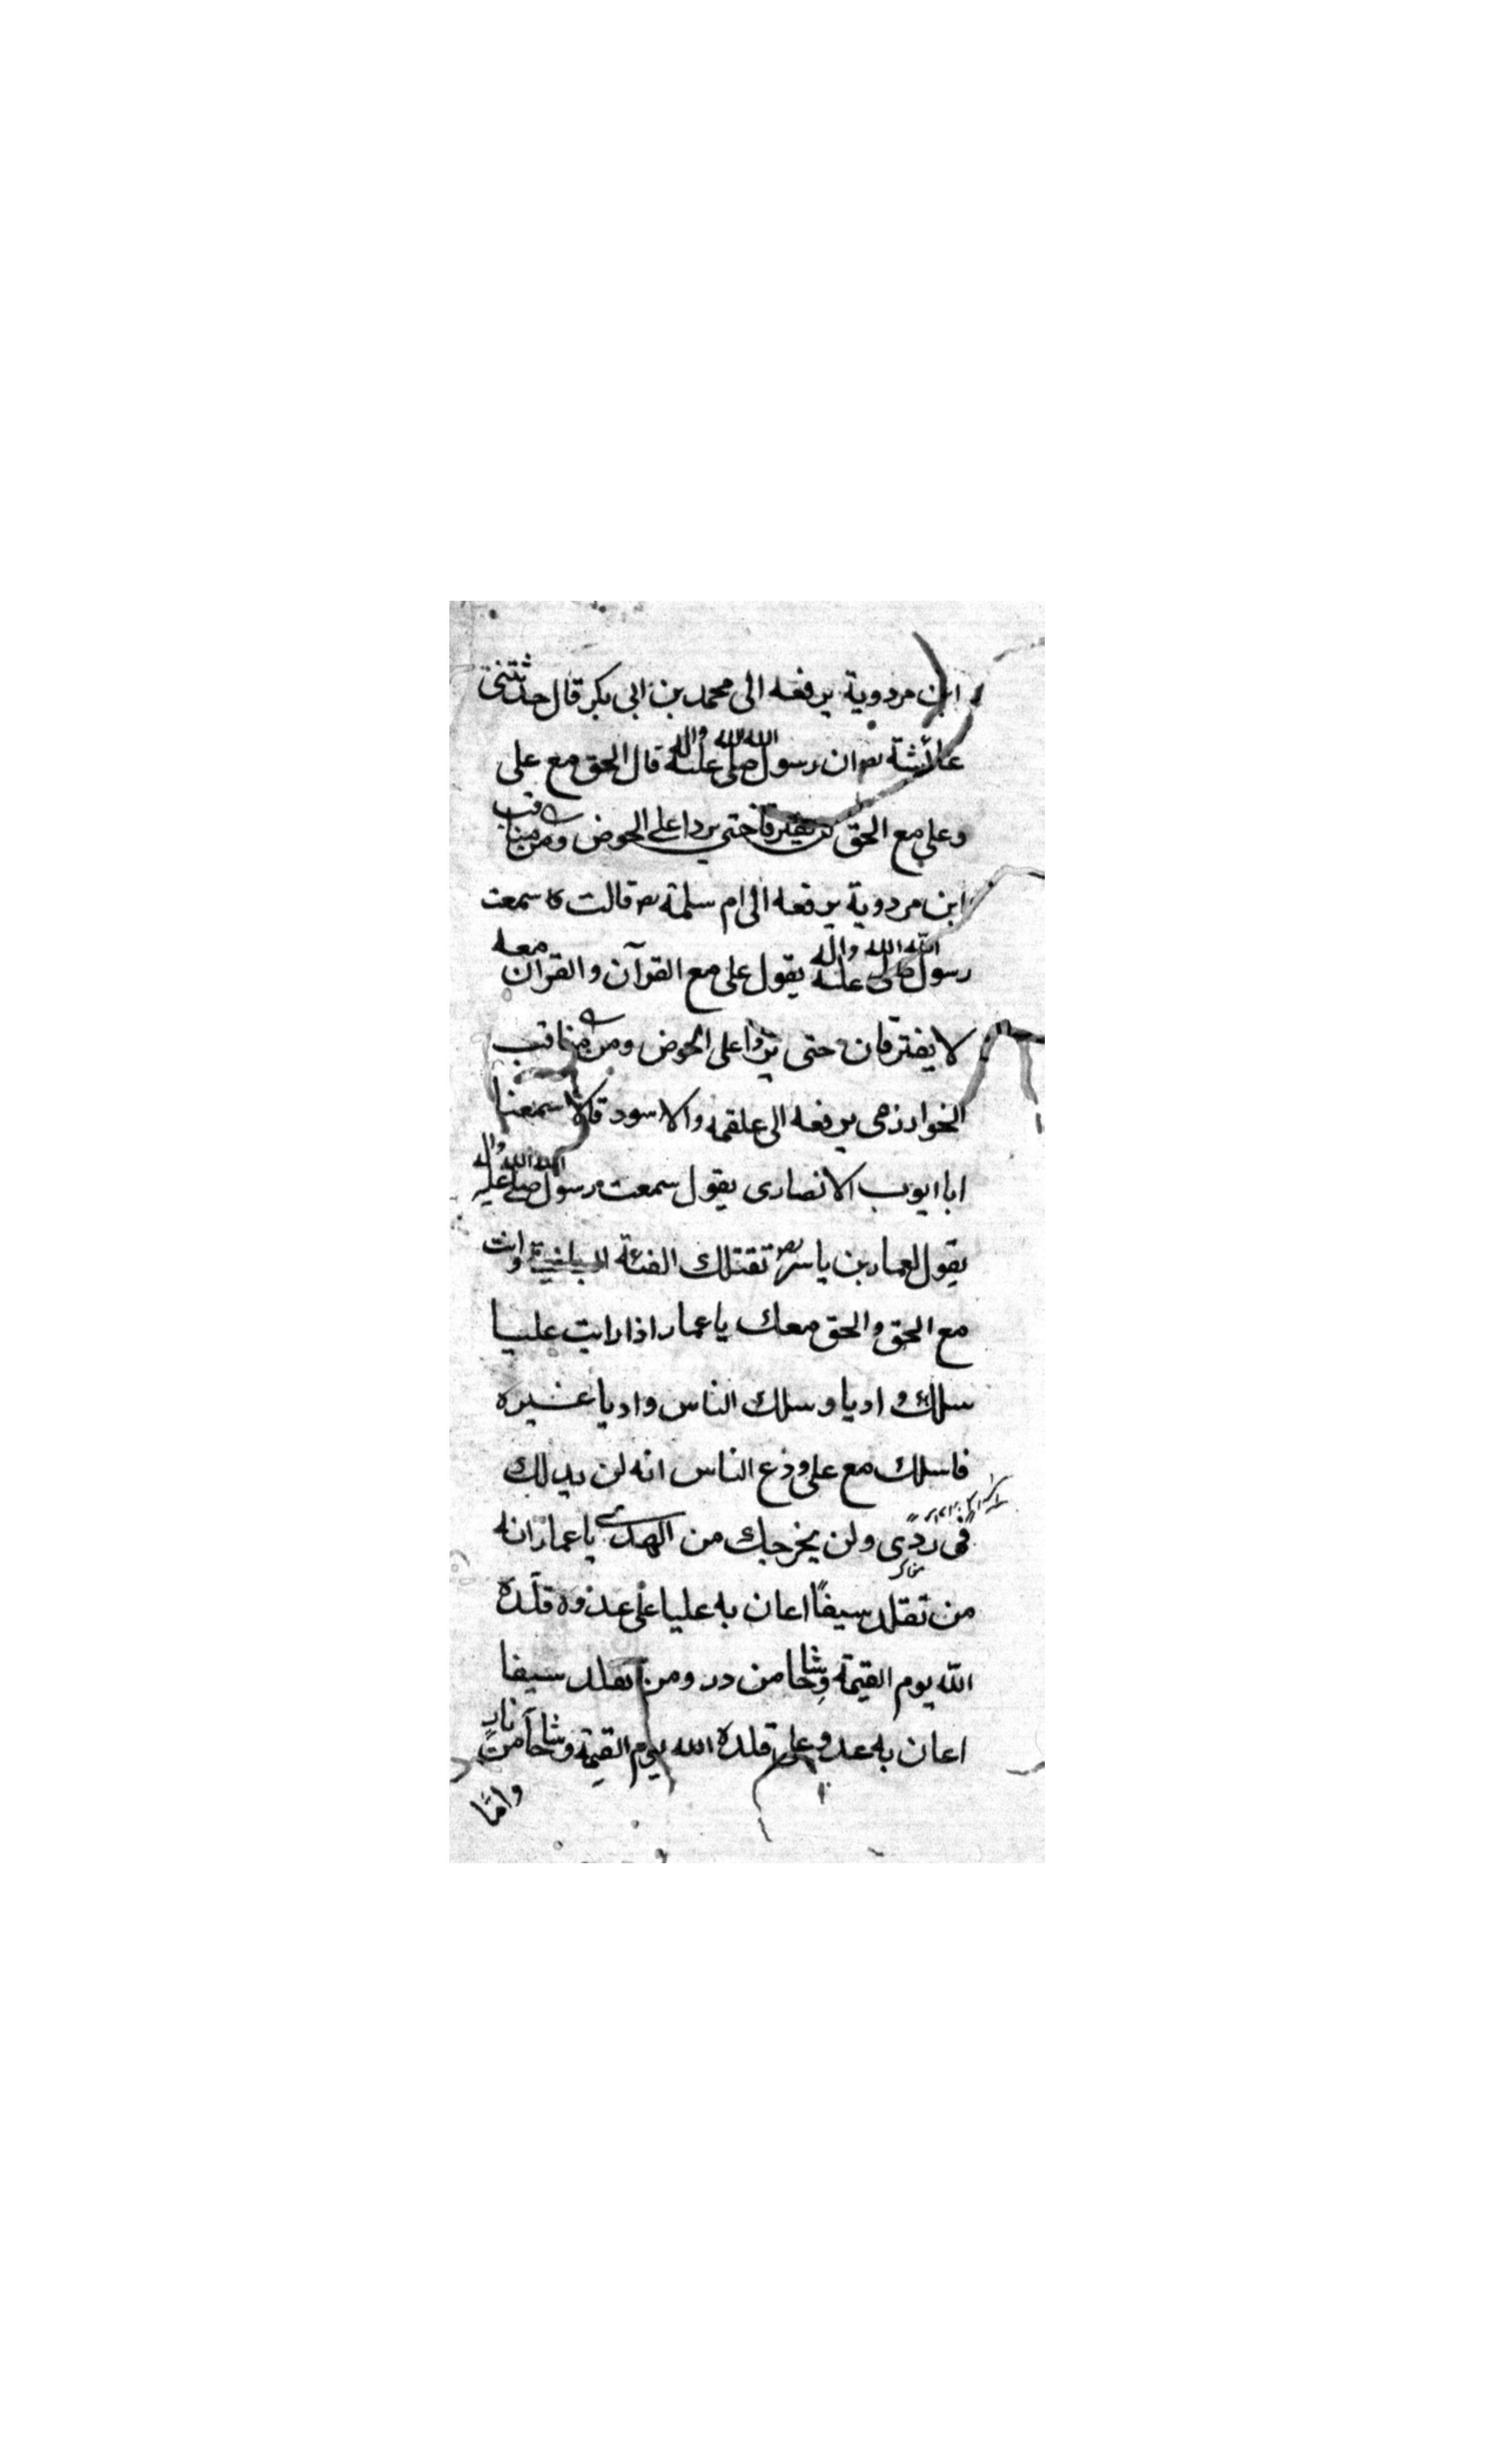 ابن مردوية يرفعه الى محمد بن ابى بكر قال حدثتنى
عائشة ان رسول الله صلى الله عليه واله قال الحق مع على
وعلى مع الحق لن يفترقا حتى يردا على الحوض ومن مناقب
ابن مردوية يرفعه الى ام سلمة قالت سمعت
رسول الله صلى الله عليه واله يقول على مع القرآن والقران معه
لا يفترقان حتى يردا على الحوض ومن مناقب
الخوارزمى يرفعه الى علقمه والاسود قالا سمعنا
ابا ايوب الانصارى يقول سمعت رسول الله صلى الله عليه واله
يقول لعمار بن ياسر تقتلك الفئة الباغية وانت
مع الحق والحق معك يا عمار اذا رايت عليا
سلك واديا وسلك الناس واديا غيره
فاسلك مع على ودع الناس انه لن يدلك
فى ردى ولن يخرجك من الهدى يا عمار انه
من تقلد سيفا اعان به عليا على عدوه قلده
الله يوم القيمة وشاحا من در ومن تقلد سيفا
اعان به عدو على قلده الله يوم القيمة وشاحا من نار
واما